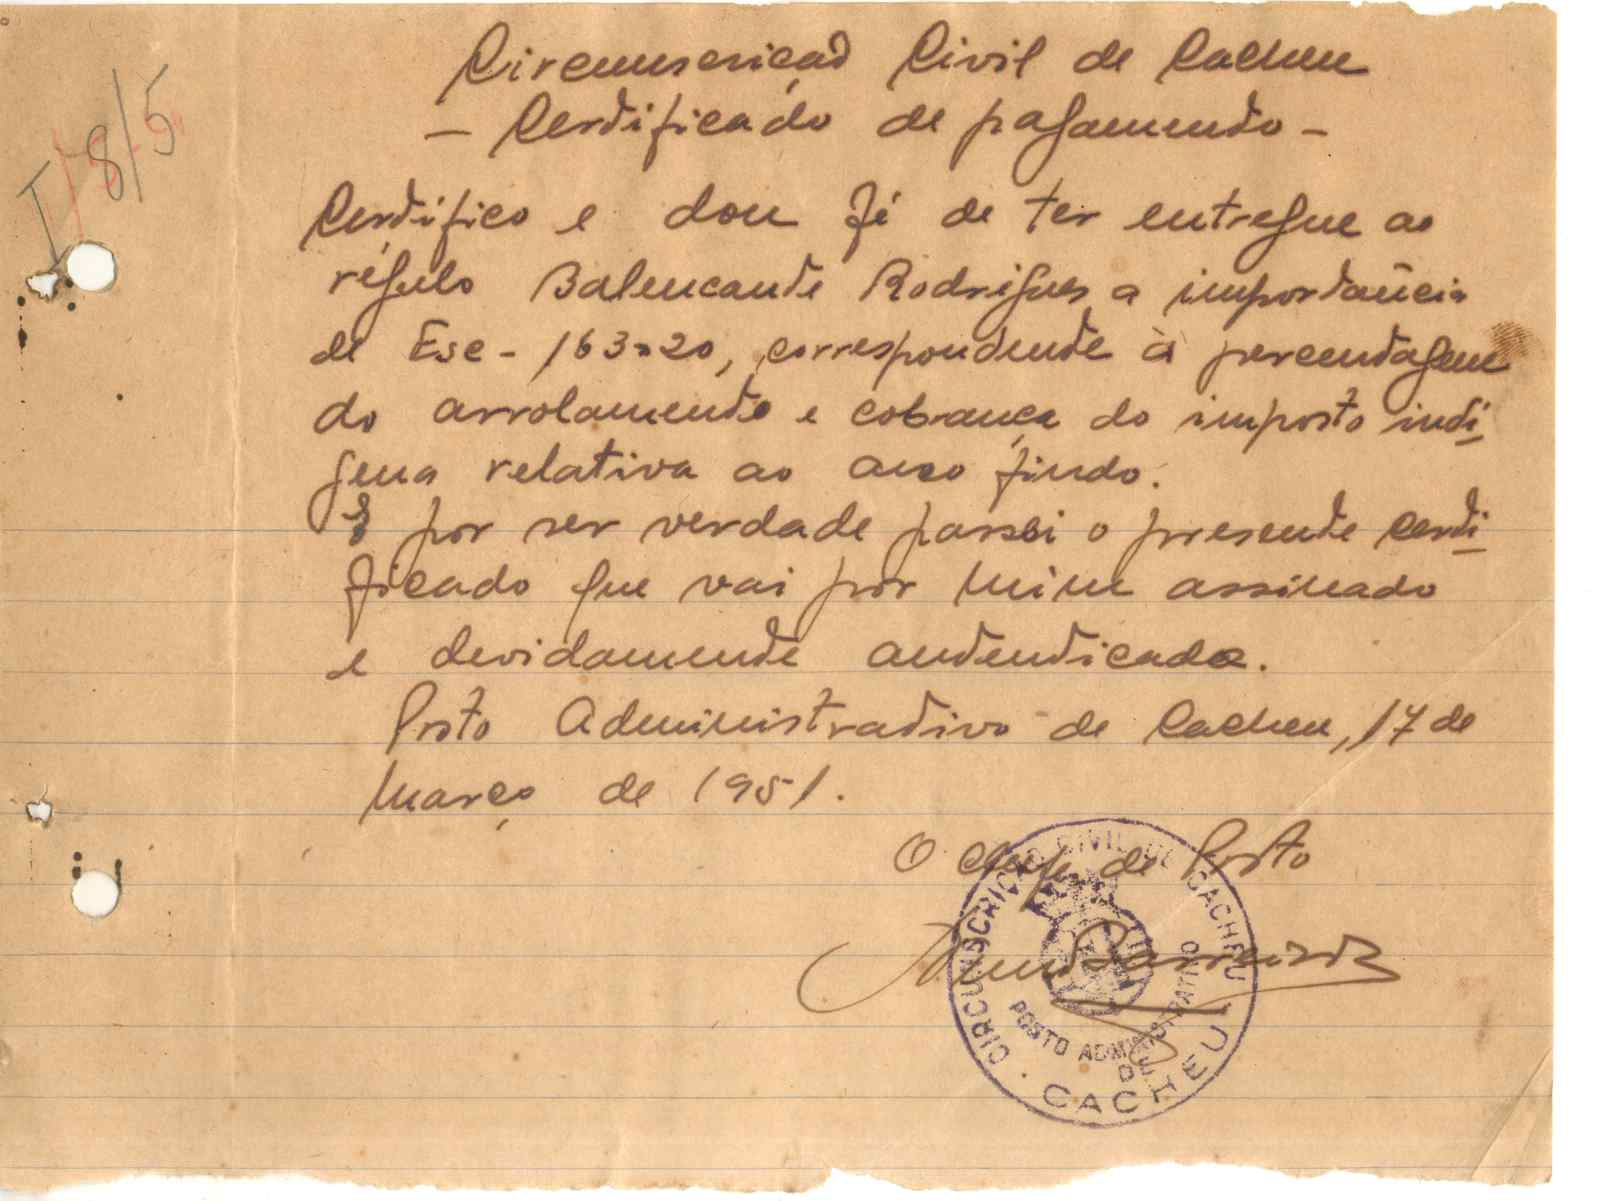 I/8/5
Circunscrição Civil de Cacheu
- Certificado de pagamento -
Certifico e dou fé de ter entregue ao
régulo Balencante Rodrigues a importância
de Esc- 163$20, correspondente à percentagem
do arrolamento e cobrança do imposto indí-
gena relativa ao ano findo.
E por ser verdade passei o presente certi-
ficado que vai por mim assinado
e devidamente autenticado.
Posto Administrativo de Cacheu, 17 de
Março de 1951.
O chefe de Posto
CIRCUNSCRIÇÃO CIVIL DE CACHEU
POSTO ADMINISTRATIVO
DE
CACHEU